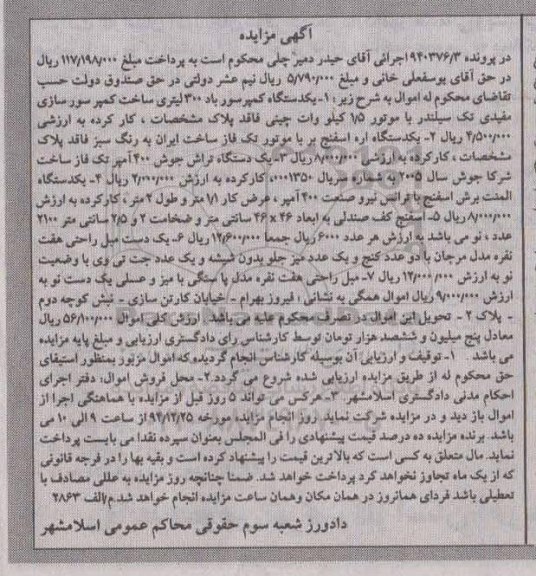 آگهی مزایده
در پرونده ۹۴۰۳۷۶/۳ اجرائی آقای حیدر دمیر چلی محکوم است به پرداخت مبلغ ۱۱۷/۱۹۸/۰۰۰ ریال
در حق آقای یوسفعلی خانی و مبلغ ۵/۷۹۰/۰۰۰ ریال نیم عشر دولتی در حق صندوق دولت حسب
تقاضای محکوم له اموال به شرح زیر: ۱- یکدستگاه کمپرسور باد ۳۰۰ لیتری ساخت کمپرسور سازی
مفیدی تک سیلندر با موتور ۱/۵ کیلو وات چینی فاقد پلاک مشخصات ، کار کرده به ارزشی
۴/۵۰۰/۰۰۰ ریال ۲- یکدستگاه اره اسفنج بر با موتور تک فاز ساخت ایران به رنگ سبز فاقد پلاک
مشخصات ، کارکرده به ارزشی ۸/۰۰۰/۰۰۰ ریال ۳- یک دستگاه تراش جوش ۴۰۰ آمپر تک فاز ساخت
شرکا جوش سال ۲۰۰۵ به شماره سریال ۰۰۰۱۳۵۰ کارکرده به ارزش ۲/۰۰۰/۰۰۰ ریال ۴- یکدستگاه
المنت برش اسفنج با ترانس نیرو صنعت ۴۰۰ آمپر ، عرض کار ۱/۱ متر و طول ۲ متر ، کارکرده به ارزش
۸/۰۰۰/۰۰۰ ریال ۵- اسفنج کف صندلی به ابعاد ۴۶ × ۴۶ سانتی متر و ضخامت ۲ و ۲/۵ سانتی متر ۲۱۰۰
عدد ، نو می باشد به ارزش هر عدد ۶۰۰۰ ریال جمعا ۱۲/۶۰۰/۰۰۰ ریال ۶- یک دست مبل راحتی هفت
نفره مدل مرجان با دو عدد کنج و یک عدد میز جلو بدون شیشه و یک عدد جت تی وی با وضعیت
نو به ارزش ۱۲/۰۰۰/۰۰۰ ریال ۷- مبل راحتی هفت نفره مدل پا سنگی با میز و عسلی یک دست نو به
ارزش ۹/۰۰۰/۰۰۰ ریال اموال همگی به نشانی : فیروز بهرام - خیابان کارتن سازی - نبش کوچه دوم
- پلاک ۲ - تحویل این اموال در تصرف محکوم علیه می باشد . ارزش کلی اموال ۵۶/۱۰۰/۰۰۰ ریال
معادل پنج میلیون و ششصد هزار تومان توسط کارشناس رای دادگستری ارزیابی و مبلغ پایه مزایده
می باشد . ۱- توقیف و ارزیابی آن بوسیله کارشناس انجام گردیده که اموال مزبور بمنظور استیفای
حق محکوم له از طریق مزایده ارزیابی شده شروع می گردد. ۲- محل فروش اموال، دفتر اجرای
احکام مدنی دادگستری اسلامشهر ۳- هرکس می تواند ۵ روز قبل از مزایده با هماهنگی اجرا از
اموال باز دید و در مزایده شرکت نماید. روز انجام مزایده مورخه ۹۴/۱۲/۲۵ از ساعت ۹ الی ۱۰ می
باشد. برنده مزایده ده درصد قیمت پیشنهادی را فی المجلس بعنوان سپرده نقدا می بایست پرداخت
نماید. مال متعلق به کسی است که بالاترین قیمت را پیشنهاد کرده است و بقیه بها را در فرجه قانونی
که از یک ماه تجاوز نخواهد کرد پرداخت خواهد شد. ضمنا چنانچه روز مزایده به عللی مصادف با
تعطیلی باشد فردای همانروز در همان مکان وهمان ساعت مزایده انجام خواهد شد.م/الف ۲۸۶۳
دادورز شعبه سوم حقوقی محاکم عمومی اسلامشهر